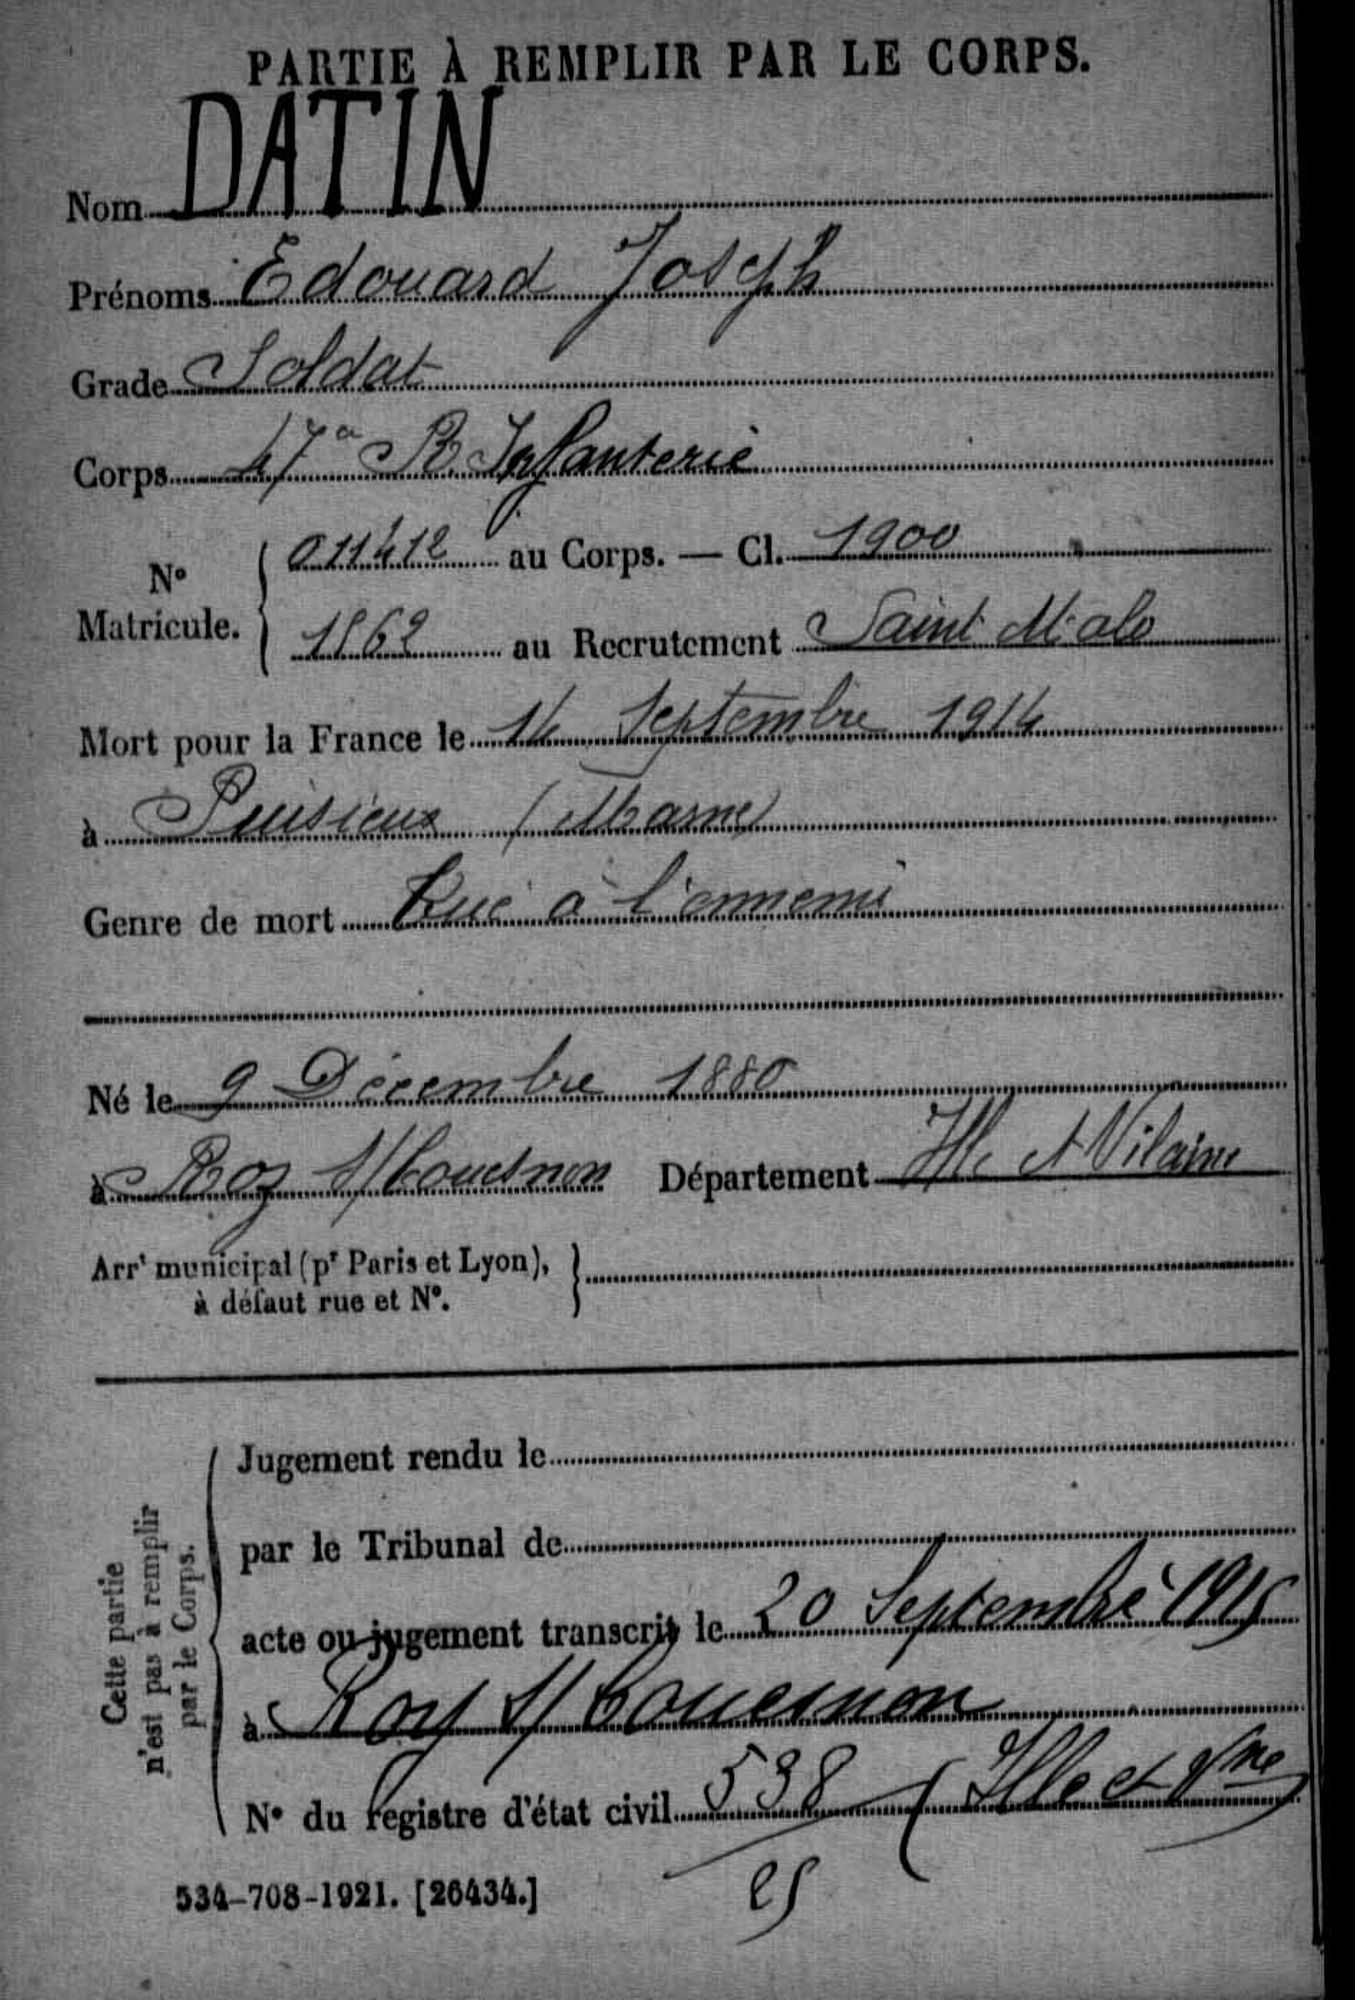 PARTIE À REMPLIR PAR LE CORPS.
Nom DATIN
Prénoms Edouard Joseph
Grade Soldat
Corps 47e R. Infanterie
N° Matricule. 011412 au Corps. — Cl. 1900
1862 au Recrutement Saint Malo
Mort pour la France le 14 Septembre 1914
à Puisieux (Marne)
Genre de mort Tué à l'ennemi
Né le 9 Décembre 1880
à Roz s/ Couesnon Département Ille et Vilaine
Arrt municipal (pr Paris et Lyon),
à défaut rue et N°.
Cette partie
n'est pas à remplir
par le Corps.
Jugement rendu le
par le Tribunal de
acte ou jugement transcrit le 20 Septembre 1915
à Roz s/ Couesnon
N° du registre d'état civil 538 (Ille et Vne)
534-708-1921. [26434.]